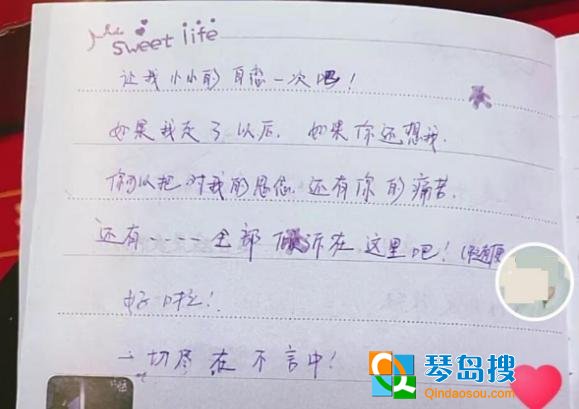 Sweet life
让我小小的自恋一次吧！
如果我走了以后，如果你还想我，
你可以把对我的思念，还有你的痛苦，
还有----全部 诉在这里吧！
好啦！
一切尽在不言中！
琴岛搜
Qindaosou.com